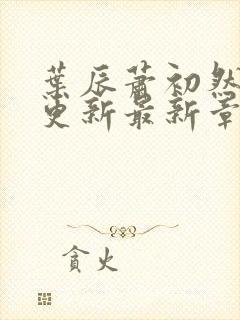 葉辰蕭初然
更新最新章
貪火